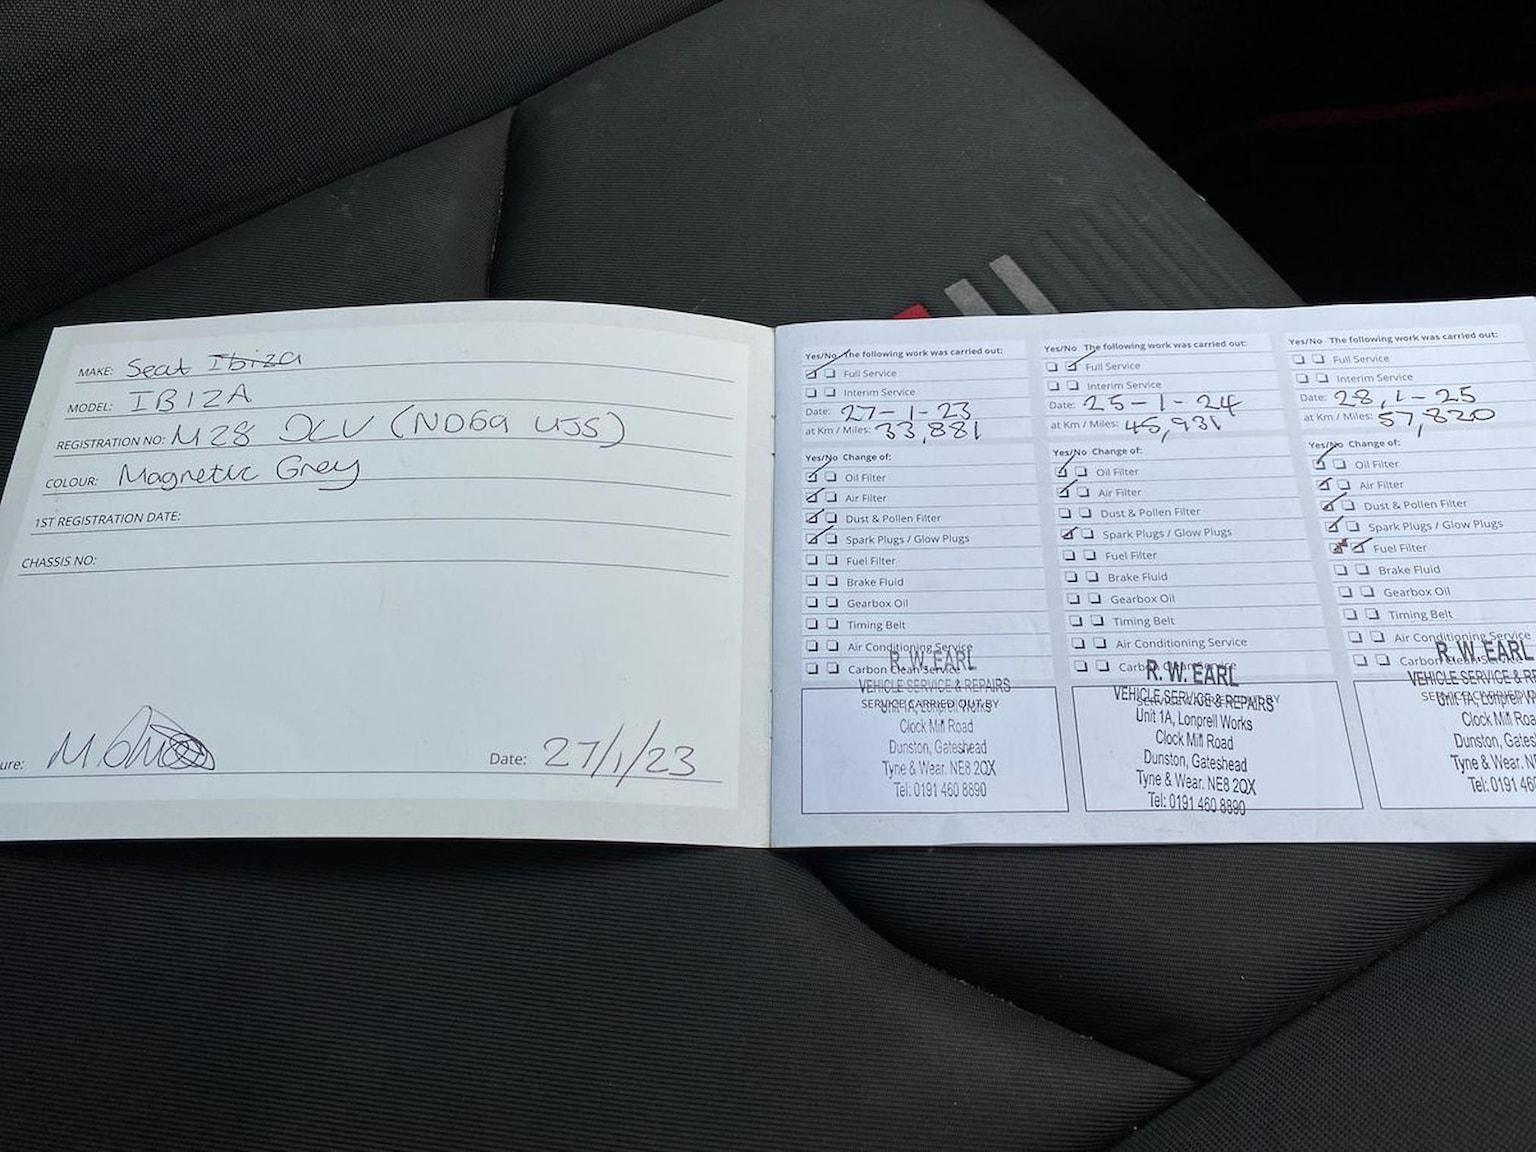 MAKE: Seat Ibiza
MODEL: IBIZA
REGISTRATION NO: M28 DLV (ND69 UJS)
COLOUR: Magnetic Grey
1ST REGISTRATION DATE:
CHASSIS NO:
ure:
Date: 27/1/23
Yes/No The following work was carried out:
Full Service
Interim Service
Date: 27-1-23
at Km / Miles: 33,881
Yes/No Change of:
Oil Filter
Air Filter
Dust & Pollen Filter
Spark Plugs / Glow Plugs
Fuel Filter
Brake Fluid
Gearbox Oil
Timing Belt
Air Conditioning Service
Carbon Clean Service
R. W. EARL
VEHICLE SERVICE & REPAIRS
SERVICE CARRIED OUT BY
Unit 1A, Lonprell Works
Clock Mill Road
Dunston, Gateshead
Tyne & Wear. NE8 2QX
Tel: 0191 460 8890
Yes/No The following work was carried out:
Full Service
Interim Service
Date: 25-1-24
at Km / Miles: 45,931
Yes/No Change of:
Oil Filter
Air Filter
Dust & Pollen Filter
Spark Plugs / Glow Plugs
Fuel Filter
Brake Fluid
Gearbox Oil
Timing Belt
Air Conditioning Service
Carbon Clean Service
R. W. EARL
VEHICLE SERVICE & REPAIRS
SERVICE CARRIED OUT BY
Unit 1A, Lonprell Works
Clock Mill Road
Dunston, Gateshead
Tyne & Wear. NE8 2QX
Tel: 0191 460 8890
Yes/No The following work was carried out:
Full Service
Interim Service
Date: 28,1-25
at Km / Miles: 57,820
Yes/No Change of:
Oil Filter
Air Filter
Dust & Pollen Filter
Spark Plugs / Glow Plugs
Fuel Filter
Brake Fluid
Gearbox Oil
Timing Belt
Air Conditioning Service
Carbon Clean Service
R. W. EARL
VEHICLE SERVICE & RE
SERVICE CARRIED
Unit 1A, Lonprell W
Clock Mill Roa
Dunston, Gates
Tyne & Wear. N
Tel: 0191 46